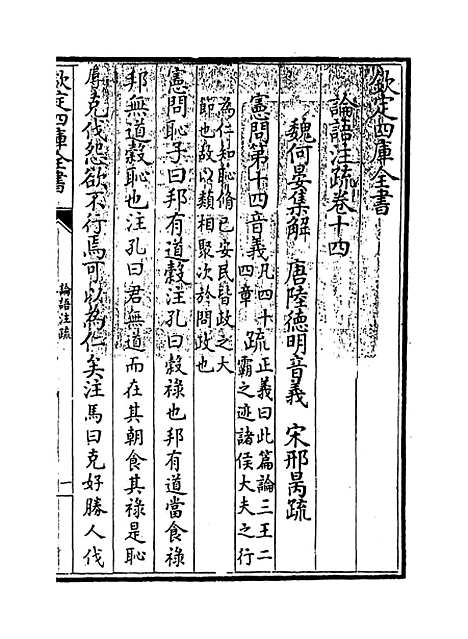 欽定四庫全書
論語注疏卷十四
魏何晏集解 唐陸德明音義 宋邢昺疏
憲問第十四音義凡四十四章疏正義曰此篇論三王二霸之迹諸侯大夫之行
為仁知恥脩己安民皆政之大節也故以類相聚次於問政也
憲問恥子曰邦有道穀注孔曰穀祿也邦有道當食祿
邦無道穀恥也注孔曰君無道而在其朝食其祿是恥
辱克伐怨欲不行焉可以為仁矣注馬曰克好勝人伐
欽定四庫全書
論語注疏
一